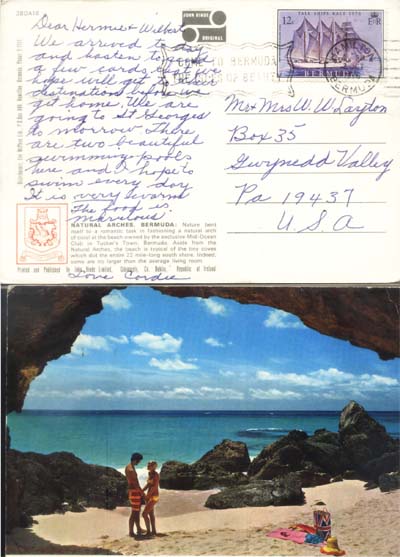 2BDA16
JOHN HINDE
ORIGINAL
TALL SHIPS RACE 1976
12c
E R
BERMUDA
HAMILTON
BERMUDA
COME TO BERMUDA
THE ISLES OF
Dear Hermie & Wilbert
We arrived to day
and hasten to
a few cards
hope will get
destinations before we
get home. We are
going to St Georges
to morrow There
are two beautiful
swimming pools
here and I hope to
swim every day
It is very warm
The food is
marvelous
Love Cordie
Mr & Mrs W. W. Layton
Box 35
Gwynedd Valley
Pa 19437
U.S.A
NATURAL ARCHES, BERMUDA: Nature bent
itself to a romantic task in fashioning a natural arch
of coral at the beach owned by the exclusive Mid-Ocean
Club in Tucker's Town, Bermuda. Aside from the
Natural Arches, the beach is typical of the tiny coves
which dot the entire 22 mile-long south shore. Indeed,
some are no larger than the average living room.
Printed and Published by John Hinde Limited, Cabinteely, Co. Dublin, Republic of Ireland